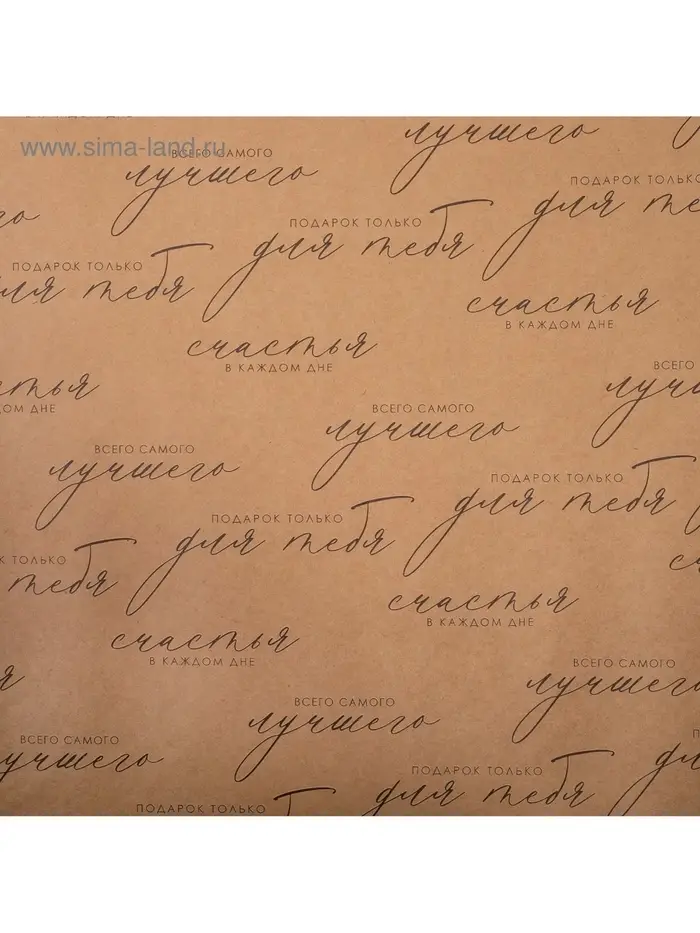 В КАЖДОМ ДНЕ
www.sima-land.ru
лучшего
ВСЕГО САМОГО
лучшего
ПОДАРОК ТОЛЬКО
для те
ПОДАРОК ТОЛЬКО
для тебя
ПОДАРОК ТОЛЬКО
для тебя
счастья
В КАЖДОМ ДНЕ
счастья
В КАЖДОМ ДНЕ
ВСЕГО
лучш
стья
ОМ ДНЕ
ВСЕГО САМОГО
лучшего
ВСЕГО САМОГО
лучшего
ПОДАРОК ТОЛЬКО
для тебя
ПОДАРОК ТОЛЬКО
для тебя
К ТОЛЬКО
тебя
счастья
В КАЖДОМ ДНЕ
счастья
В КАЖДОМ ДНЕ
ВСЕГО САМОГО
лучшего
ВСЕГО САМОГО
лучшего
ВСЕГО САМОГО
лучшего
ПОДАРОК ТОЛЬКО
для тебя
ПОДАРОК ТОЛЬКО